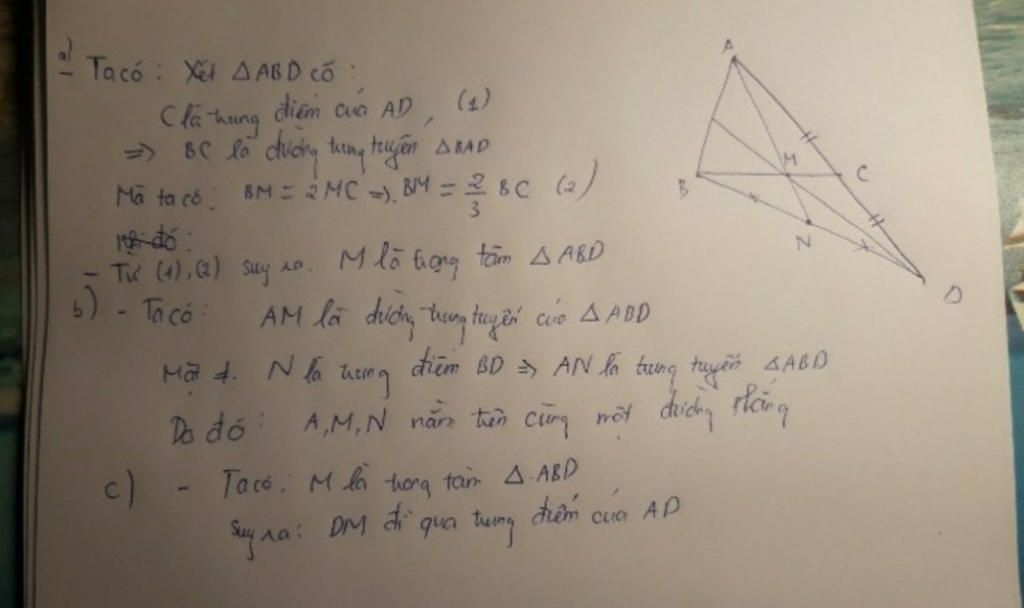 a)
- Ta có: Xét △ABD có:
C là trung điểm của AD, (1)
=> BC là đường trung tuyến △BAD
Mà ta có: BM = 2MC => BM = 2/3 BC (2)
- Từ (1), (2) suy ra. M là trọng tâm △ABD
b) - Ta có: AM là đường trung tuyến của △ABD
Mặt ≠. N là trung điểm BD => AN là trung tuyến △ABD
Do đó: A, M, N nằm trên cùng một đường thẳng
c) - Ta có: M là trọng tâm △ABD
Suy ra: DM đi qua trung điểm của AD
A
B
M
C
N
D